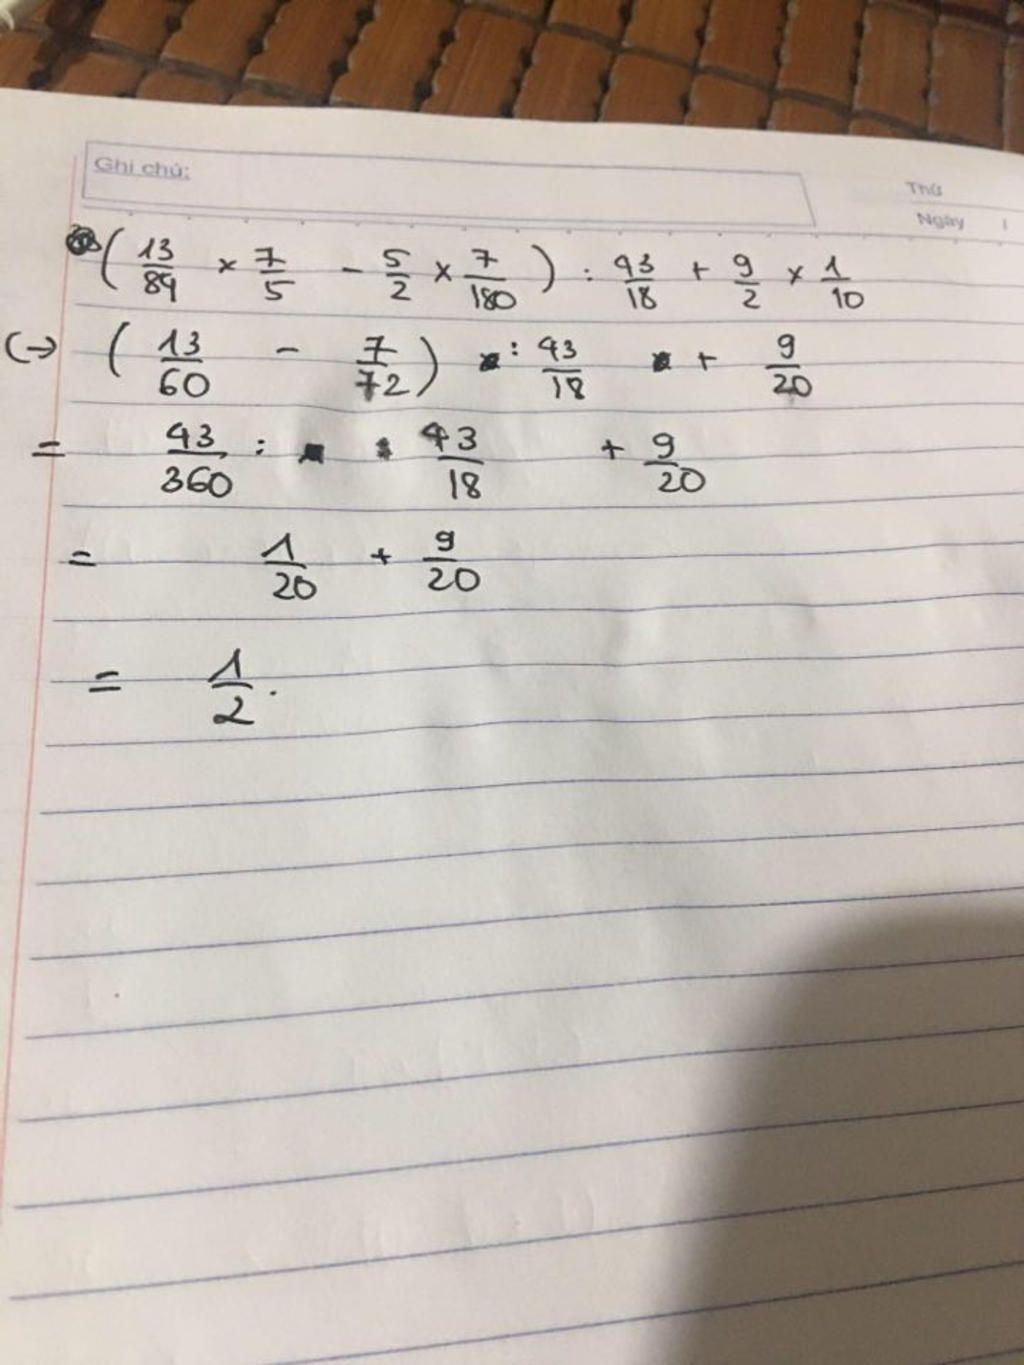 Ghi chú:
Thứ
Ngày
( 13/84 × 7/5 - 5/2 × 7/180 ) : 43/18 + 9/2 × 1/10
(→ ( 13/60 - 7/72 ) : 43/18 + 9/20
= 43/360 : 43/18 + 9/20
= 1/20 + 9/20
= 1/2.